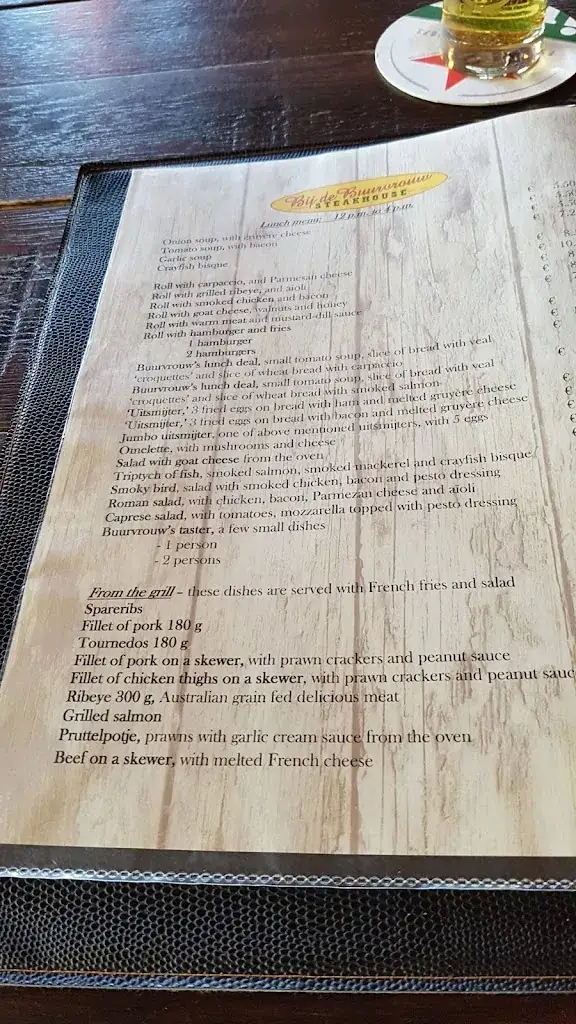 Bij de Buurvrouw
STEAKHOUSE
Lunch menu: 12 p.m. to 4 p.m.
Onion soup, with gruyère cheese
Tomato soup, with bacon
Garlic soup
Crayfish bisque
Roll with carpaccio, and Parmesan cheese
Roll with grilled ribeye, and aioli
Roll with smoked chicken and bacon
Roll with goat cheese, walnuts and honey
Roll with warm meat and mustard-dill sauce
Roll with hamburger and fries
1 hamburger
2 hamburgers
Buurvrouw's lunch deal, small tomato soup, slice of bread with veal
'croquettes' and slice of wheat bread with carpaccio
Buurvrouw's lunch deal, small tomato soup, slice of bread with veal
'croquettes' and slice of wheat bread with smoked salmon
'Uitsmijter,' 3 fried eggs on bread with ham and melted gruyère cheese
'Uitsmijter,' 3 fried eggs on bread with bacon and melted gruyère cheese
Jumbo uitsmijter, one of above mentioned uitsmijters, with 5 eggs
Omelette, with mushrooms and cheese
Salad with goat cheese from the oven
Triptych of fish, smoked salmon, smoked mackerel and crayfish bisque
Smoky bird, salad with smoked chicken, bacon and pesto dressing
Roman salad, with chicken, bacon, Parmezan cheese and aïoli
Caprese salad, with tomatoes, mozzarella topped with pesto dressing
Buurvrouw's taster, a few small dishes
- 1 person
- 2 persons
From the grill – these dishes are served with French fries and salad
Spareribs
Fillet of pork 180 g
Tournedos 180 g
Fillet of pork on a skewer, with prawn crackers and peanut sauce
Fillet of chicken thighs on a skewer, with prawn crackers and peanut sauc
Ribeye 300 g, Australian grain fed delicious meat
Grilled salmon
Pruttelpotje, prawns with garlic cream sauce from the oven
Beef on a skewer, with melted French cheese